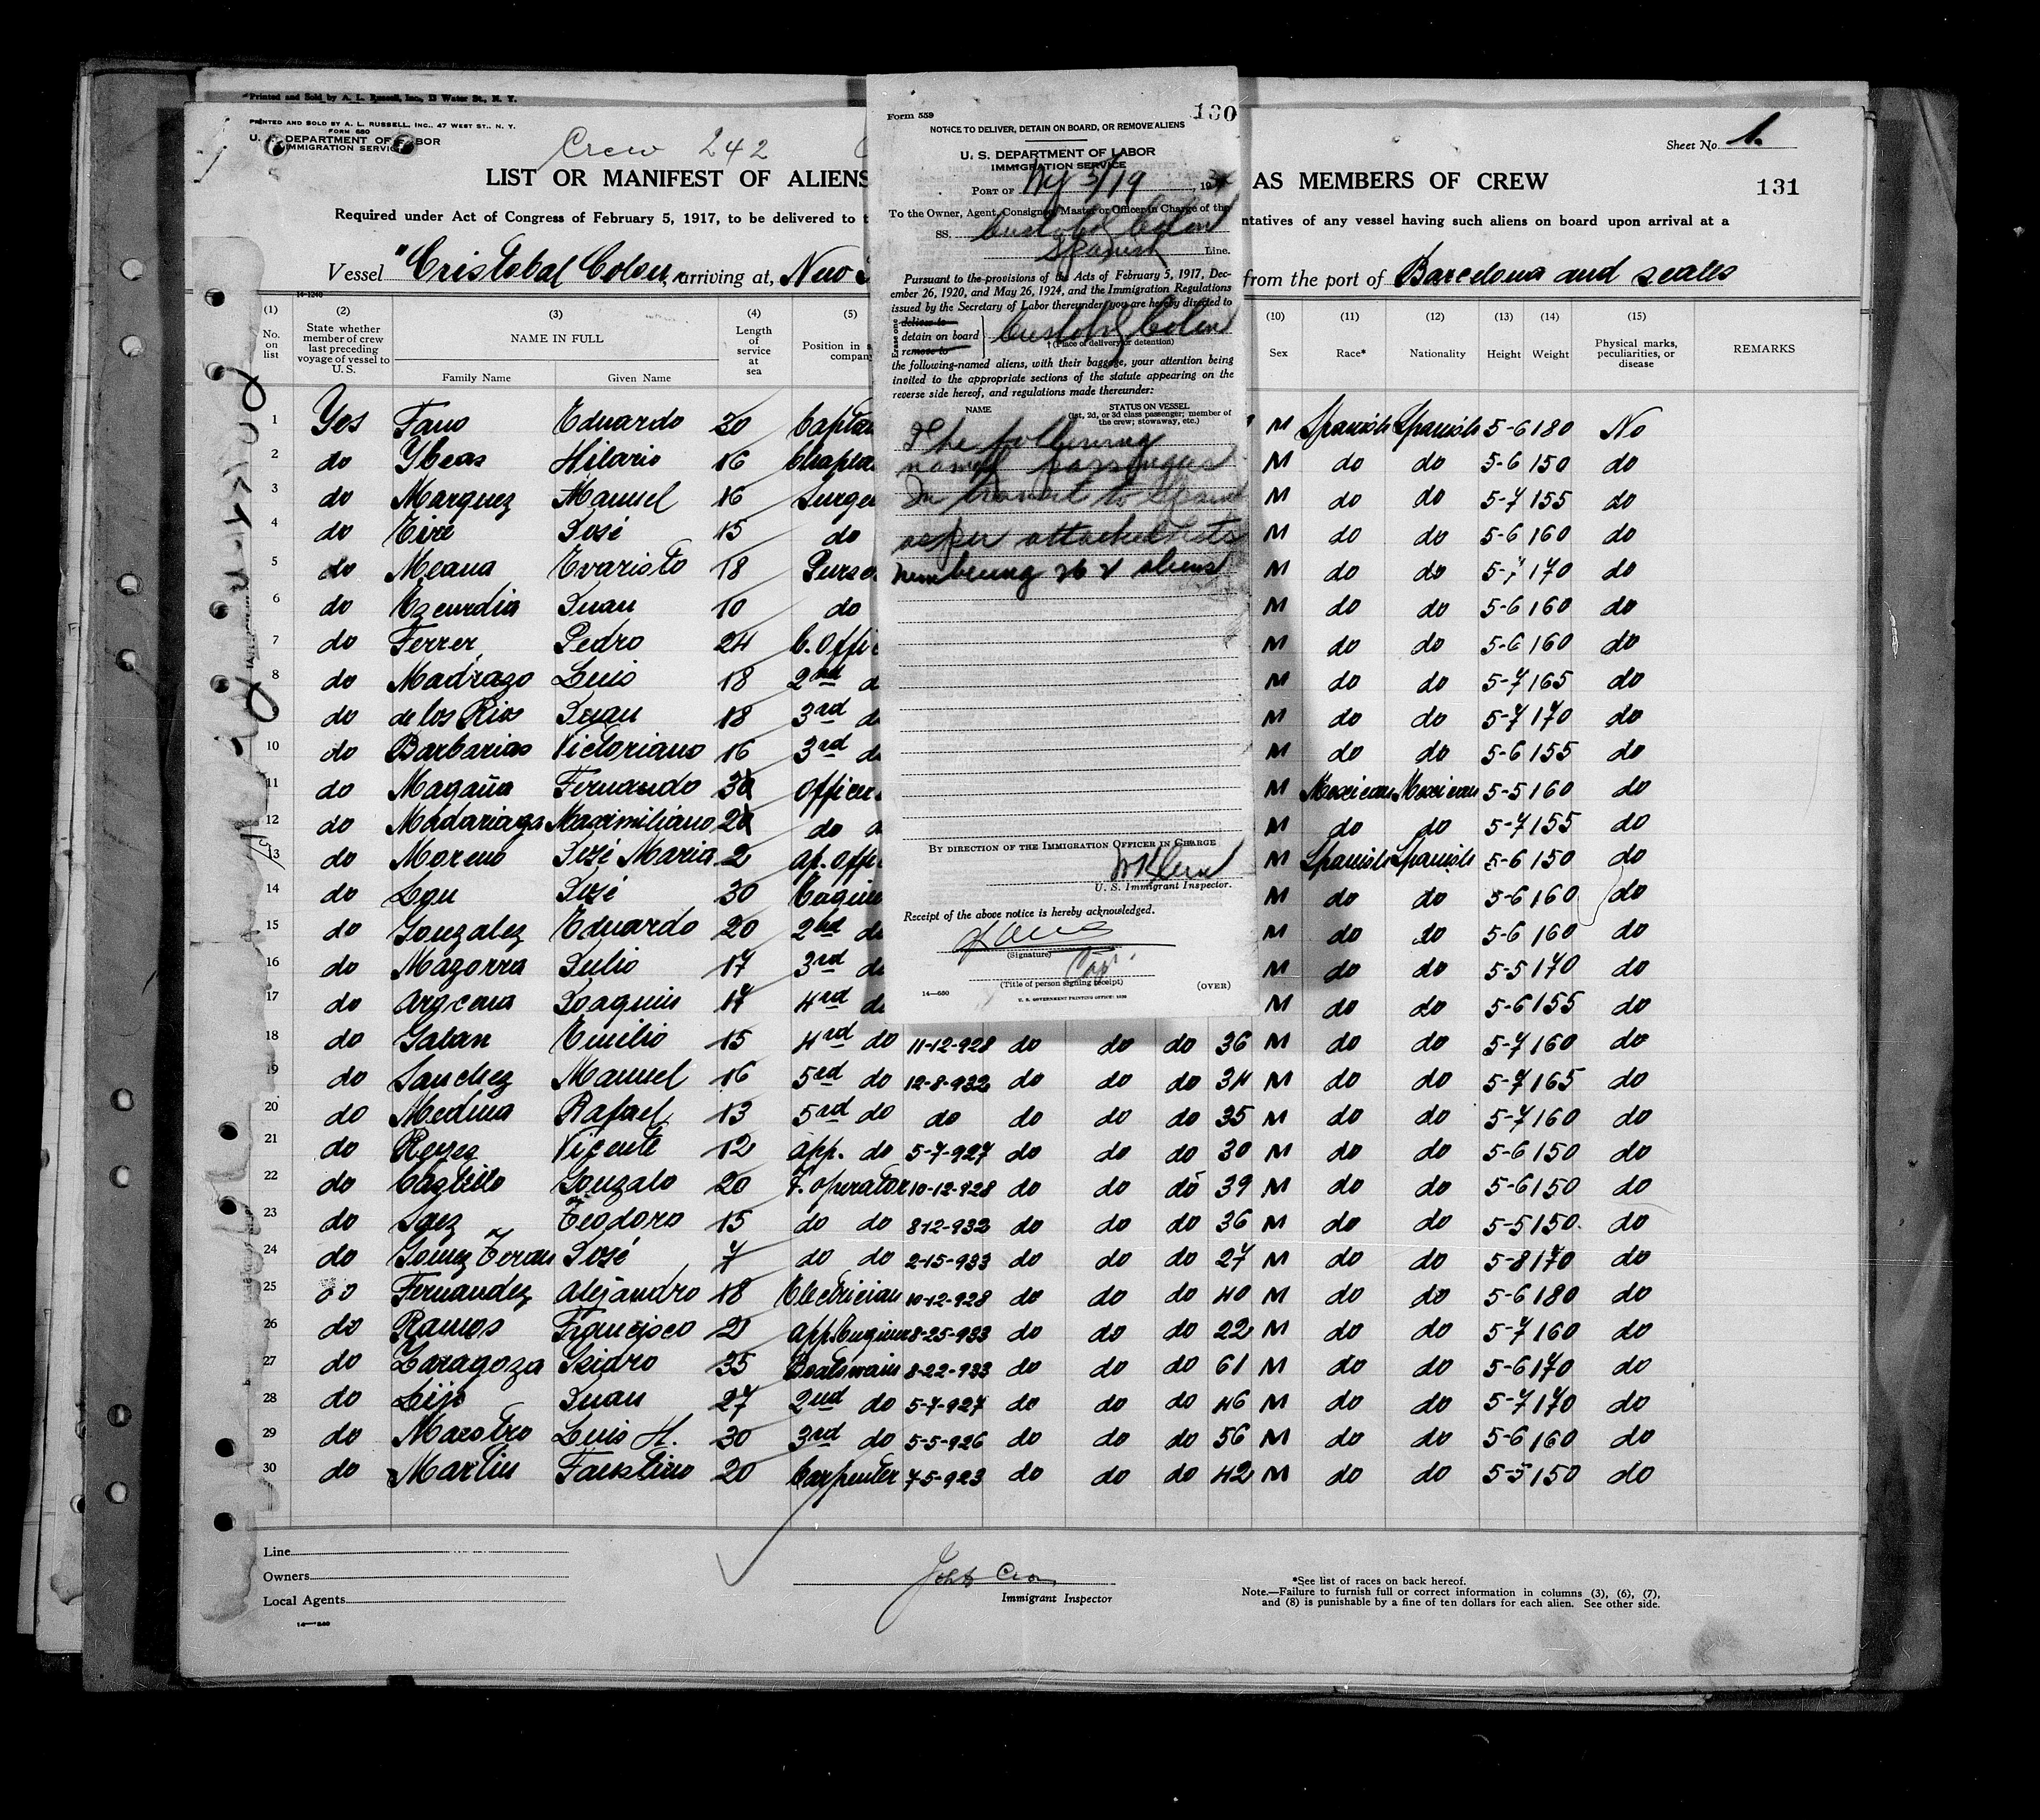 Printed and Sold by A. L. Russell, Inc., 13 Water St., N. Y.
PRINTED AND SOLD BY A. L. RUSSELL, INC., 47 WEST ST., N. Y.
FORM 680
U. S. DEPARTMENT OF LABOR
IMMIGRATION SERVICE
Crew 242
Sheet No. 1.
LIST OR MANIFEST OF ALIENS
AS MEMBERS OF CREW
131
Required under Act of Congress of February 5, 1917, to be delivered to t
ntatives of any vessel having such aliens on board upon arrival at a
Vessel "Cristobal Colon, arriving at, New
from the port of Barcelona and scales
14-1240
(1) (2) (3) (4) (5) (10) (11) (12) (13) (14) (15)
No. on list
State whether member of crew last preceding voyage of vessel to U.S.
NAME IN FULL
Family Name Given Name
Length of service at sea
Position in s company
Sex Race* Nationality Height Weight
Physical marks, peculiarities, or disease
REMARKS
1 Yes Fano Eduardo 30 Captai M Spanish Spanish 5-6 180 No
2 do Ybeas Hilario 16 Chaplai M do do 5-6 150 do
3 do Marquez Manuel 16 Surge M do do 5-7 155 do
4 do Eire José 15 do M do do 5-6 160 do
5 do Meana Evaristo 18 Purse M do do 5-7 170 do
6 do Ezcurdia Juan 10 do M do do 5-6 160 do
7 do Ferrer Pedro 24 C. Offi M do do 5-6 160 do
8 do Madrazo Luis 18 2nd d M do do 5-7 165 do
do de los Rios Juan 18 3rd d M do do 5-7 170 do
10 do Barbarias Victoriano 16 3rd d M do do 5-6 155 do
11 do Magaña Fernando officer M Mexican Mexican 5-5 160 do
12 do Madariaga Maximiliano do d M do do 5-7 155 do
13 do Moreno José Maria 2 ap. offi M Spanish Spanish 5-6 150 do
14 do José 30 Engine M do do 5-6 160 do
15 do Gonzalez Eduardo 20 2nd d M do do 5-6 160 do
16 do Mazorra Julio 17 3rd d M do do 5-5 170 do
17 do Joaquin 17 4rd d M do do 5-6 155 do
18 do Galan Emilio 15 4rd do 11-12-928 do do do 36 M do do 5-7 160 do
19 do Sanchez Manuel 16 5rd do 12-8-932 do do do 34 M do do 5-7 165 do
20 do Medina Rafael 13 5rd do do do do do 35 M do do 5-7 160 do
21 do Reyes Vicente 12 app. do 5-7-927 do do do 30 M do do 5-6 150 do
22 do Castillo Gonzalo 20 F. operator 10-12-928 do do do 39 M do do 5-6 150 do
23 do Saez Teodoro 15 do do 8-12-932 do do do 36 M do do 5-5 150. do
24 do Gomez Teran José 7 do do 2-15-933 do do do 27 M do do 5-8 170 do
25 do Fernandez Alejandro 18 Electrician 10-12-928 do do do 40 M do do 5-6 180 do
26 do Ramos Francisco 2 app. Engineer 8-25-933 do do do 22 M do do 5-7 160 do
27 do Zaragoza Isidro 35 Boatswain 8-22-933 do do do 61 M do do 5-6 170 do
28 do Lijo Juan 27 2nd do 5-7-927 do do do 46 M do do 5-7 170 do
29 do Maestro Luis H. 30 3rd do 5-5-926 do do do 56 M do do 5-6 160 do
30 do Martin Faustino 20 Carpenter 7-5-923 do do do 42 M do do 5-5 150 do
Line
Owners
Local Agents
Immigrant Inspector
*See list of races on back hereof.
Note.—Failure to furnish full or correct information in columns (3), (6), (7),
and (8) is punishable by a fine of ten dollars for each alien. See other side.
Form 559
130
NOTICE TO DELIVER, DETAIN ON BOARD, OR REMOVE ALIENS
U. S. DEPARTMENT OF LABOR
IMMIGRATION SERVICE
PORT OF NY 5/19, 193
To the Owner, Agent, Consignee, Master or Officer in Charge of the
SS. Cristobal Colon
Spanish Line.
Pursuant to the provisions of the Acts of February 5, 1917, Dec-
ember 26, 1920, and May 26, 1924, and the Immigration Regulations
issued by the Secretary of Labor thereunder, you are hereby directed to
Erase one
deliver to
detain on board
remove to
Cristobal Colon
† (Place of delivery or detention)
the following-named aliens, with their baggage, your attention being
invited to the appropriate sections of the statute appearing on the
reverse side hereof, and regulations made thereunder:
NAME
STATUS ON VESSEL
(1st, 2d, or 3d class passenger; member of
the crew; stowaway, etc.)
The following
named passengers
In transit to Spain
as per attached lists
numbering aliens
BY DIRECTION OF THE IMMIGRATION OFFICER IN CHARGE
U. S. Immigrant Inspector.
Receipt of the above notice is hereby acknowledged.
(Signature)
Cap.
(Title of person signing receipt)
14—650
U. S. GOVERNMENT PRINTING OFFICE
(OVER)